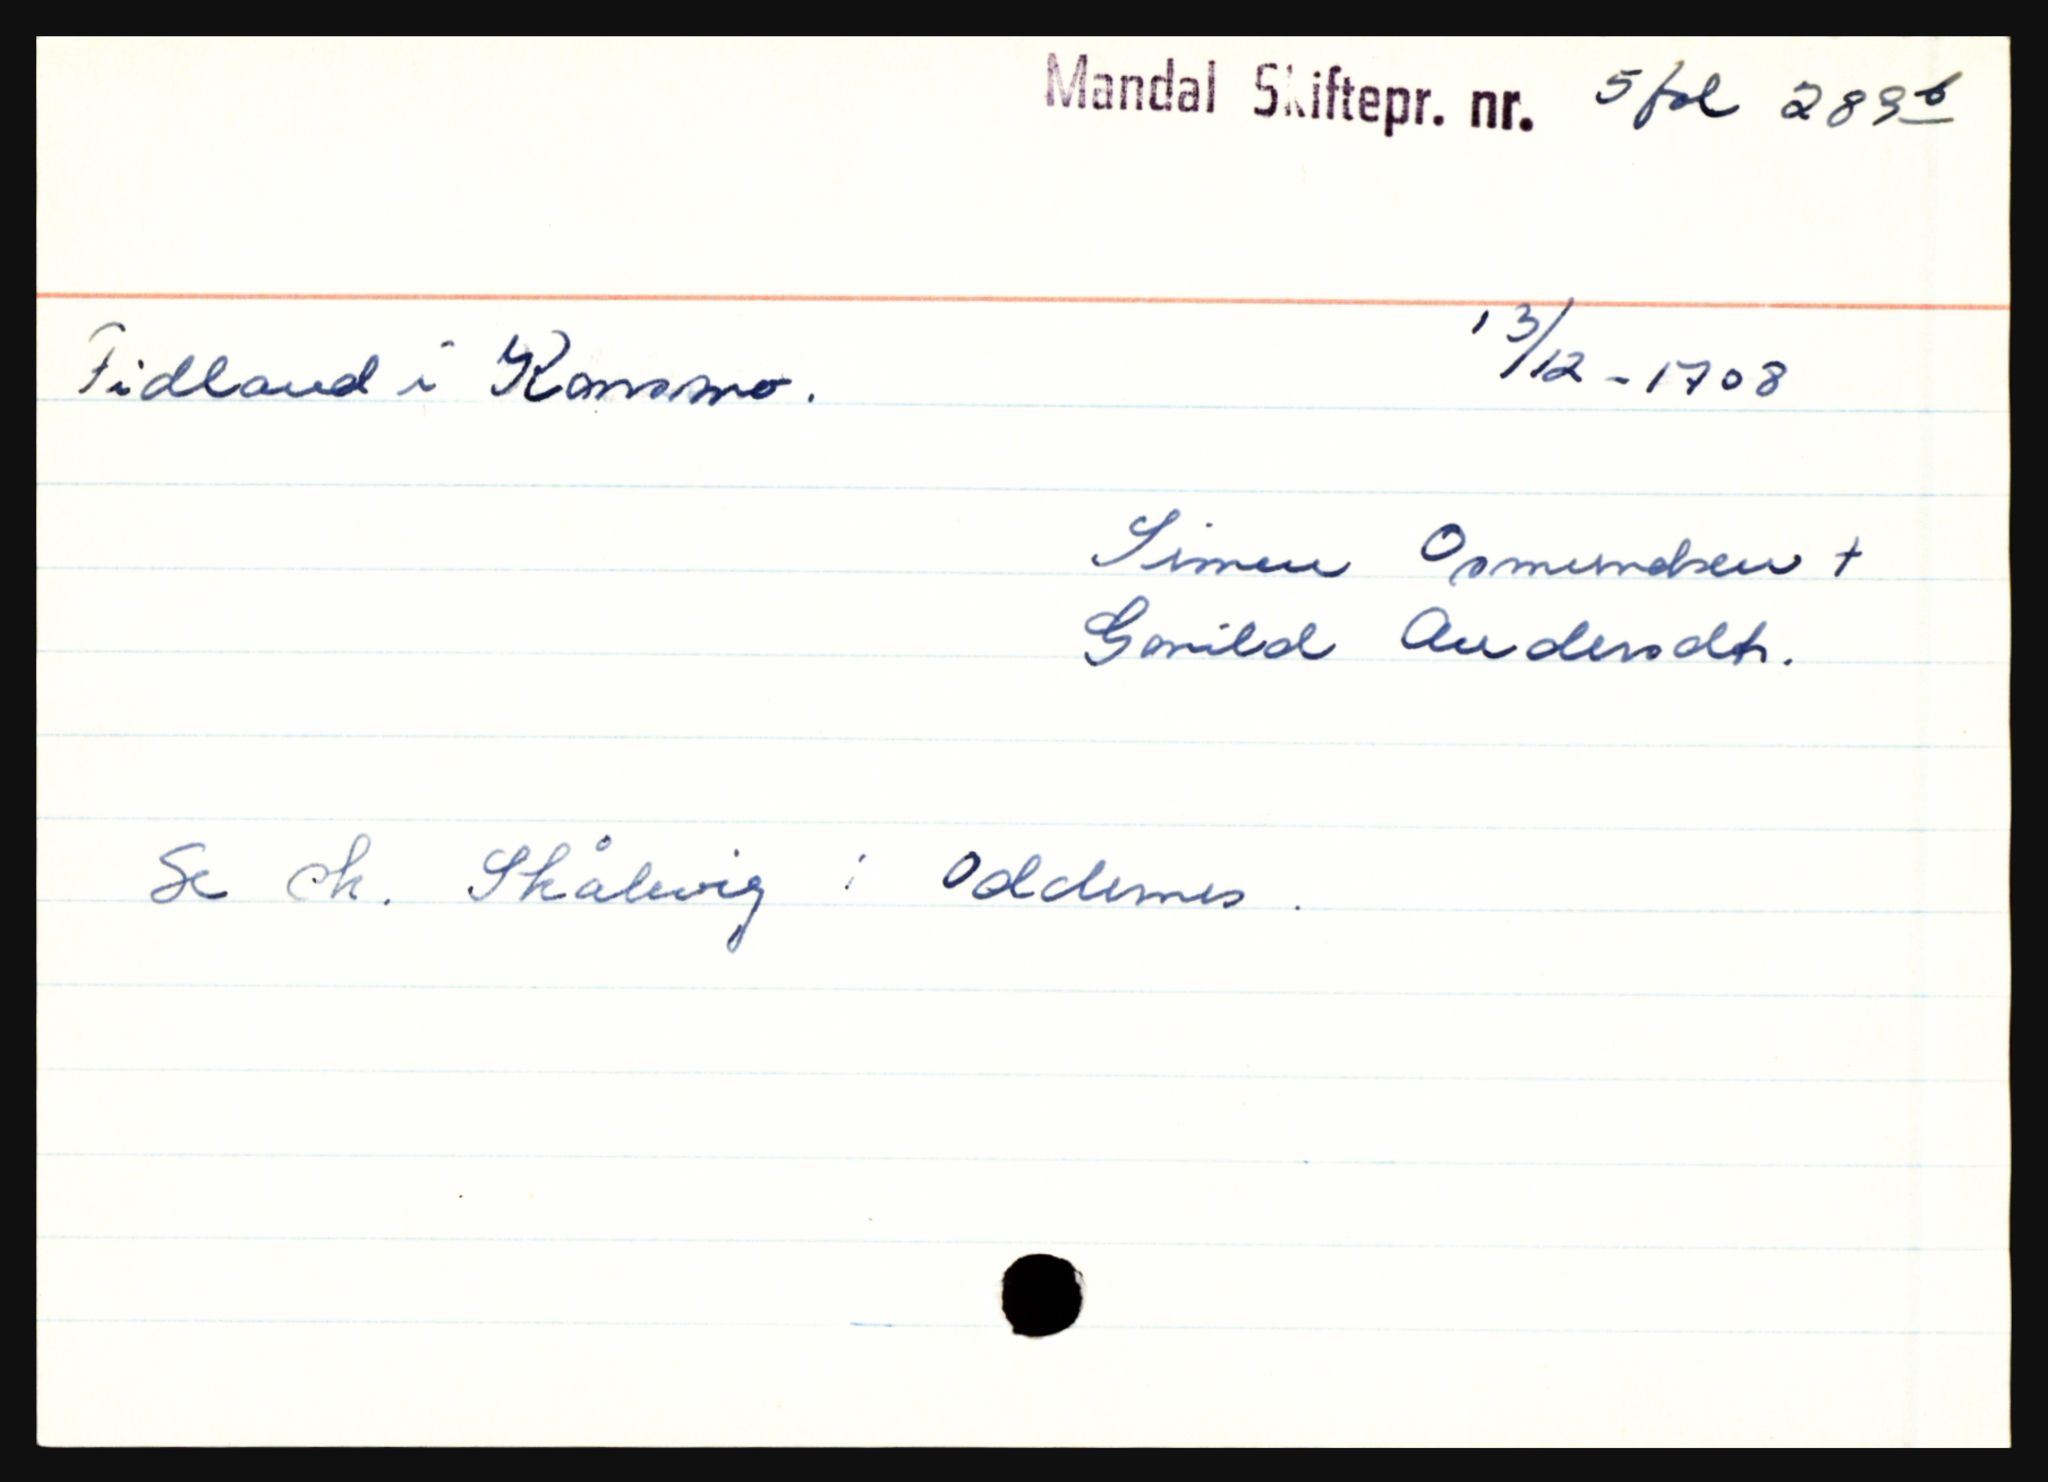 Mandal Skiftepr. nr. 5 fol 289b
Fidland i Konsmo. 13/12 - 1708
Simen Osmundsen +
Gonild Andersdtr.
Se ch. Skålevig i Oddernes.